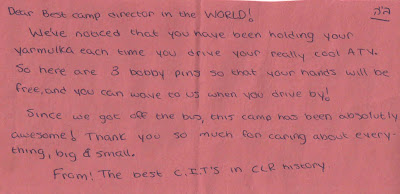 Dear Best camp director in the WORLD!
ב"ה
We've noticed that you have been holding your
yarmulka each time you drive your really cool ATV.
So here are 3 bobby pins so that your hands will
be free, and you can wave to us when you drive by!
Since we got off the bus, this camp has been absolutly
awesome! Thank you so much for caring about every-
thing, big & small.
From: The best C.I.T's in CLR history